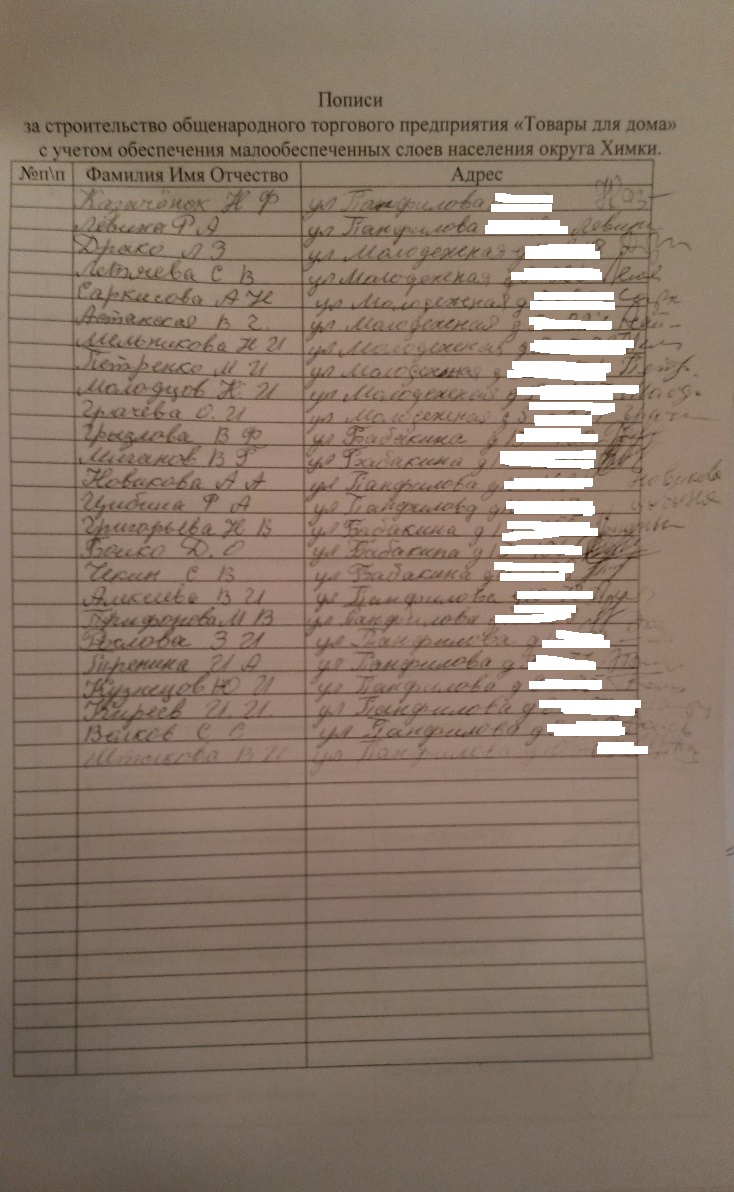 Пописи
за строительство общенародного торгового предприятия «Товары для дома»
с учетом обеспечения малообеспеченных слоев населения округа Химки.
№п\п Фамилия Имя Отчество Адрес
Казачёнок Н Ф ул Панфилова Каз
Левина Р А ул Панфилова Левин
Драко Л З ул Молодежная д
С В ул Молодежная д
Саркисова А Н ул Молодежная д
Астанская В Г ул Молодежная д
Мельникова Н И ул Молодежная д
Петренко М И ул Молодежная Петр.
Молодцов Н. И ул Молодежная Молод.
Грачёва О. И ул Молодежная д
Грызлова В Ф ул Бабакина д
В Г ул Бабакина д
Новикова А А ул Панфилова д Новикова
Р А ул Панфилова д
Григорьева Н В ул Бабакина д
Бойко Д. С ул Бабакина д
Чекин С В ул Бабакина д
Алексеева В И ул Панфилова
М В ул Панфилова
З И ул Панфилова д
И А ул Панфилова д
Кузнецов Ю И ул Панфилова д
Киреев И. И. ул Панфилова д
С С ул Панфилова д
В И ул Панфилова д